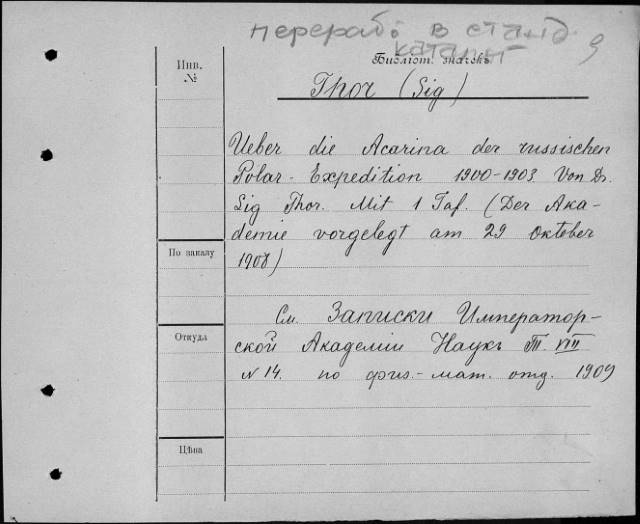 перераб. в станд.
каталог
Инв.
№
Библіот. значекъ
Thor (Sig)
Ueber die Acarina der russischen
Polar-Expedition 1900-1903. Von Dr.
Sig Thor. Mit 1 Taf. (Der Aka-
demie vorgelegt am 29 Oktober
1908)
По заказу
См. Записки Император-
ской Академіи Наукъ Т. VIII
Откуда
N 14. по физ.-мат. отд. 1909
Цѣна